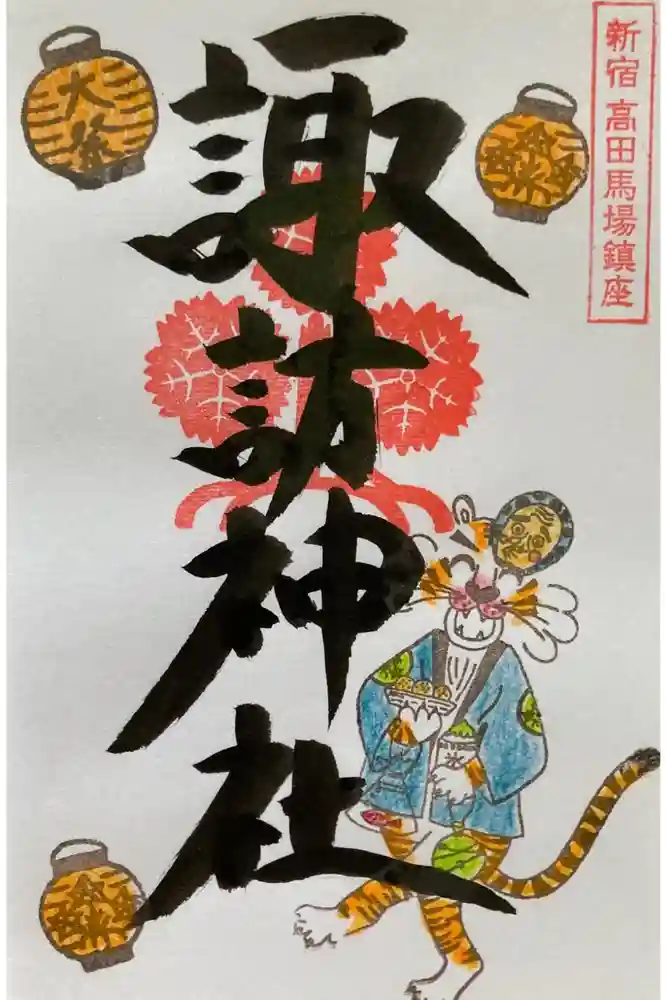 新宿 高田馬場鎮座
諏訪神社
大祭
氷